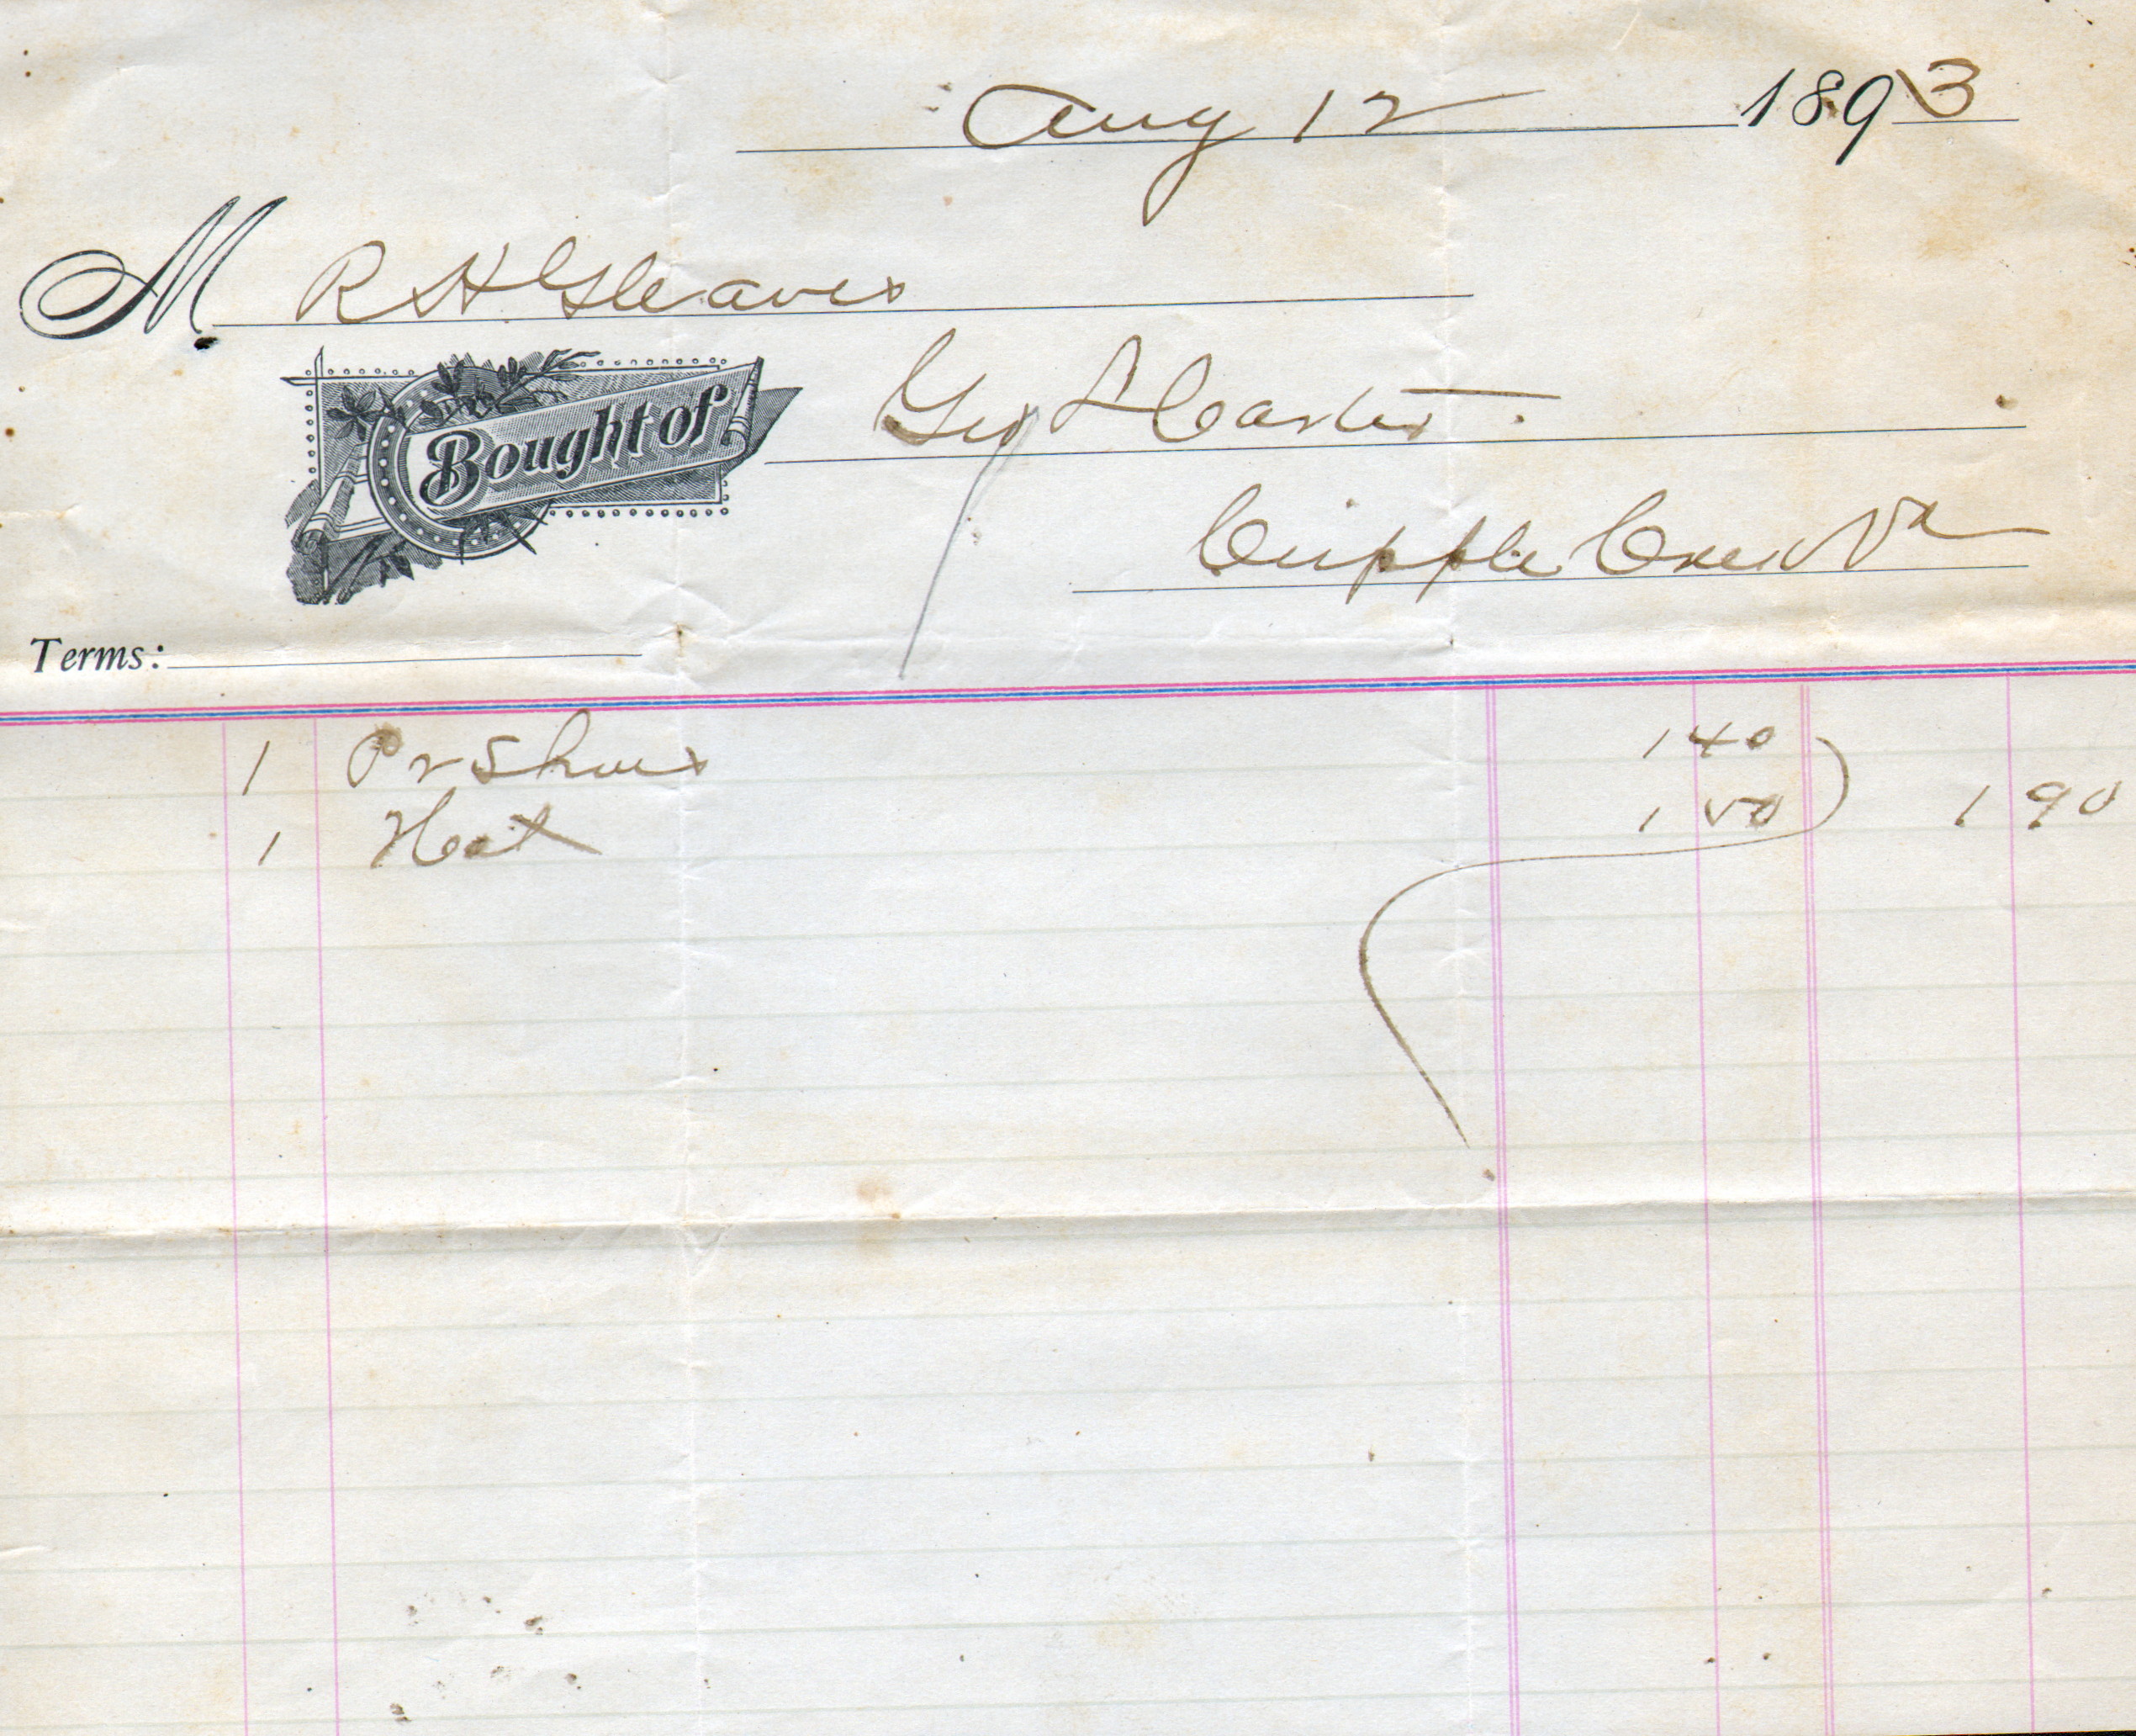 Aug 12 1893
M R H Gleaves
Bought of Geo Carter
Cripple Creek Va
Terms:
1 Pr Shoes 1 40
1 Hat 1 50 1 90